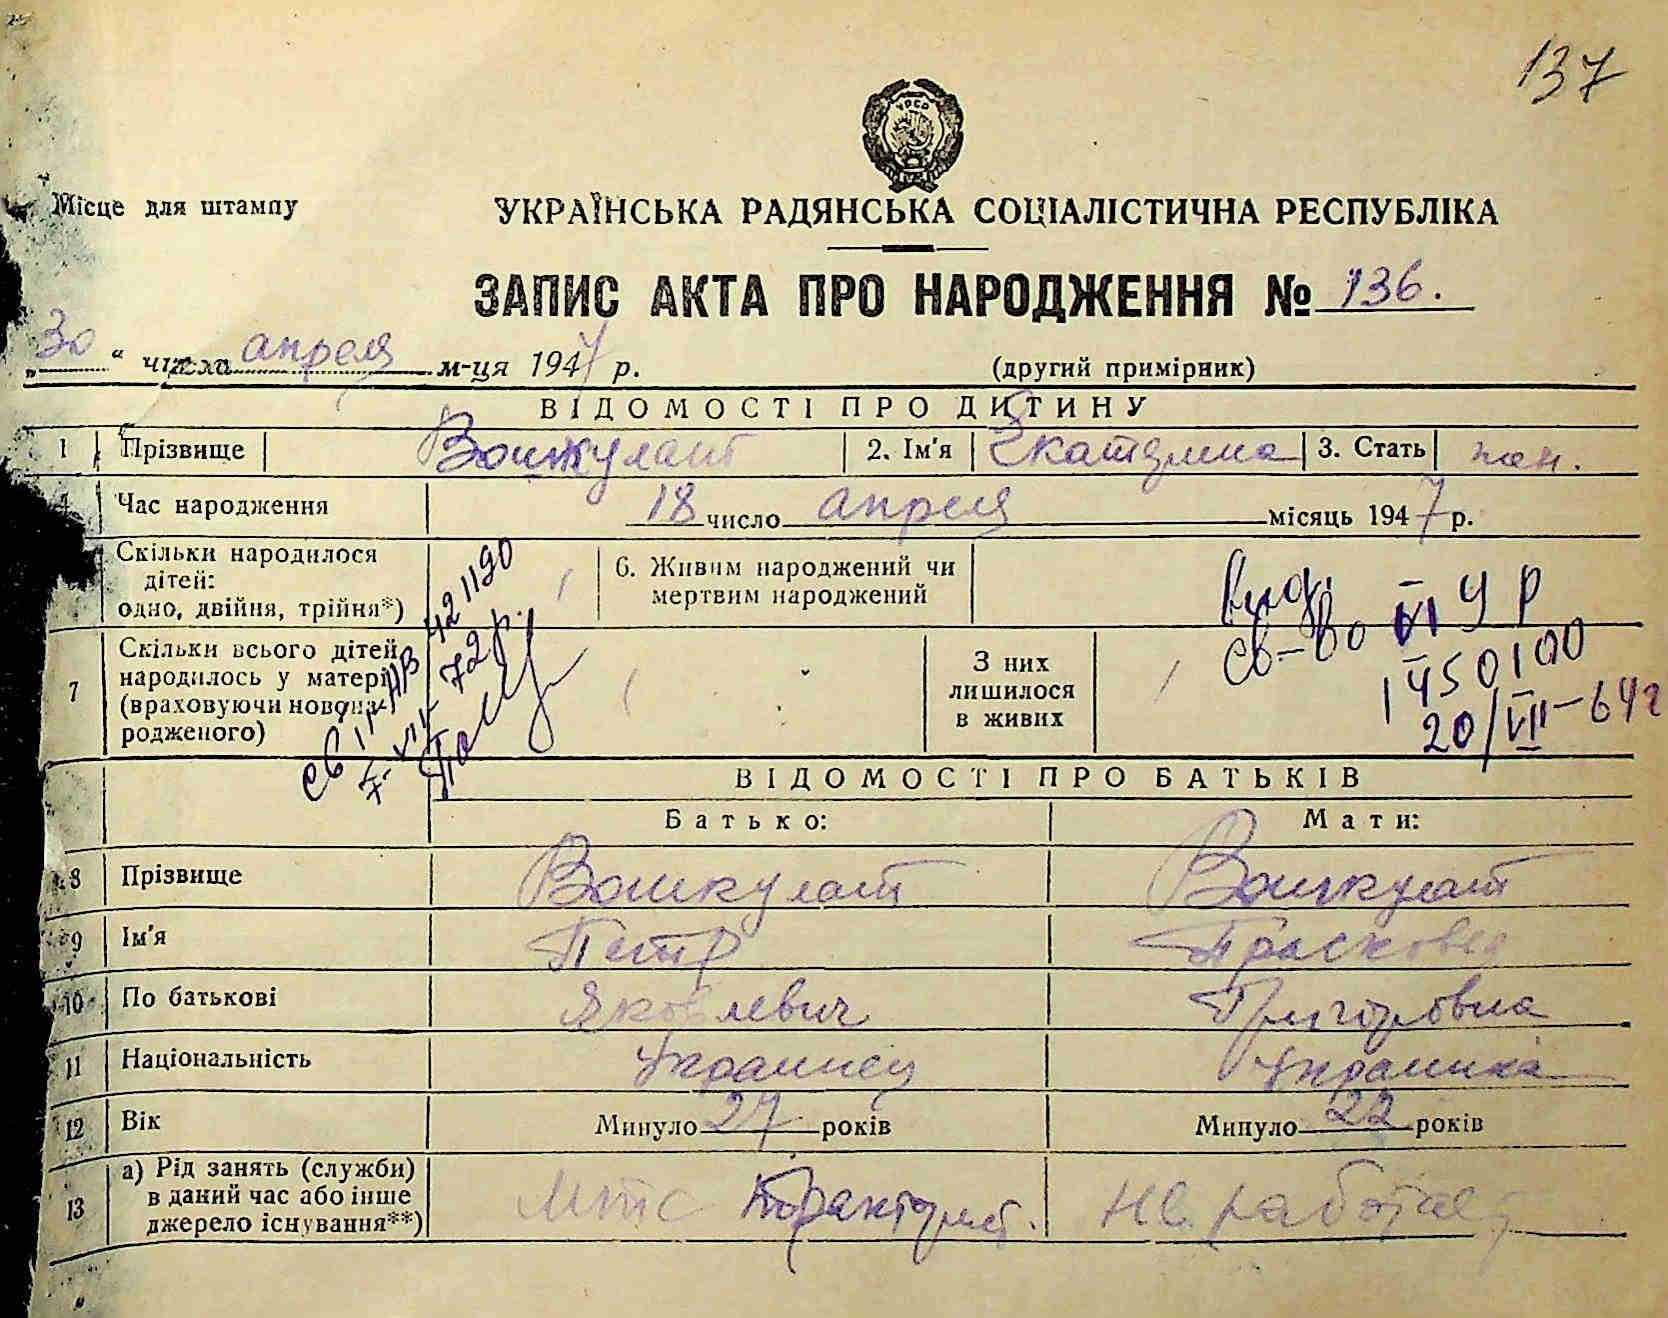 137
УРСР
Місце для штампу
УКРАЇНСЬКА РАДЯНСЬКА СОЦІАЛІСТИЧНА РЕСПУБЛІКА
ЗАПИС АКТА ПРО НАРОДЖЕННЯ № 136.
„30“ числа апреля м-ця 1947 р.
(другий примірник)
ВІДОМОСТІ ПРО ДИТИНУ
1 Прізвище Вошкулат 2. Ім'я Екатерина 3. Стать жен.
Час народження 18 число апреля місяць 1947 р.
Скільки народилося дітей: одно, двійня, трійня*) 6. Живим народжений чи мертвим народжений
7 Скільки всього дітей народилось у матері (враховуючи новона-родженого) З них лишилося в живих
св II АВ 421190
7-XII-72р.
св-во VI УР
1450100
20/VII-64г
ВІДОМОСТІ ПРО БАТЬКІВ
Батько: Мати:
8 Прізвище Вошкулат Вошкулат
9 Ім'я Петр Прасковея
10 По батькові Яковлевич Григоровна
11 Національність Украинец Украинка
12 Вік Минуло 27 років Минуло 22 років
13 а) Рід занять (служби) в даний час або інше джерело існування**) МТС Тракторист. Не работает